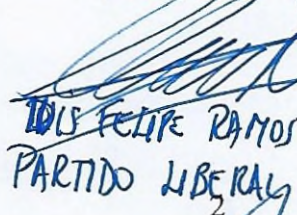 LUIS FELIPE RAMOS
PARTIDO LIBERAL